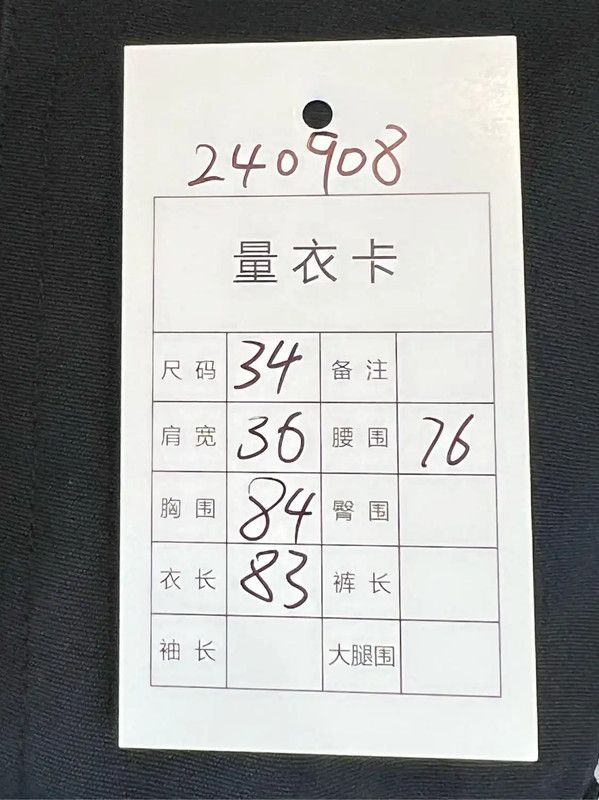 240908
量衣卡
尺码 34 备注
肩宽 36 腰围 76
胸围 84 臀围
衣长 83 裤长
袖长 大腿围